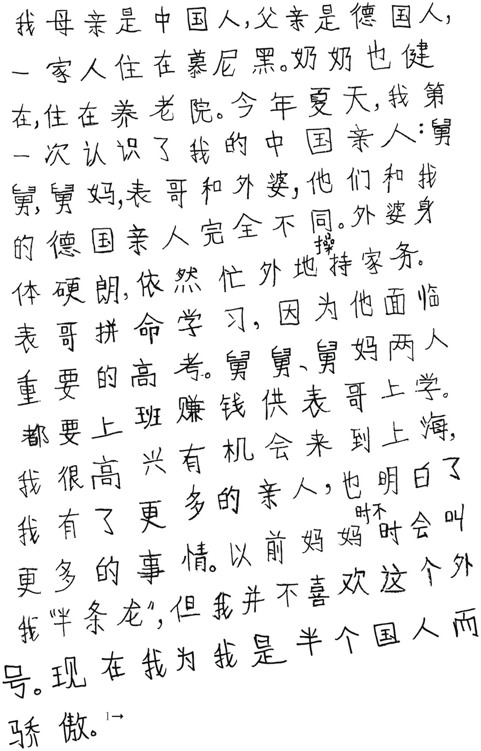 我母亲是中国人,父亲是德国人,
一家人住在慕尼黑。奶奶也健
在,住在养老院。今年夏天,我第
一次认识了我的中国亲人:舅
舅,舅妈,表哥和外婆,他们和我
的德国亲人完全不同。外婆身
体硬朗,依然忙外地操持家务。
表哥拼命学习,因为他面临
重要的高考。舅舅、舅妈两人
都要上班赚钱供表哥上学。
我很高兴有机会来到上海,
我有了更多的亲人,也明白了
更多的事情。以前妈妈时不时会叫
我"半条龙",但我并不喜欢这个外
号。现在我为我是半个国人而
骄傲。1→